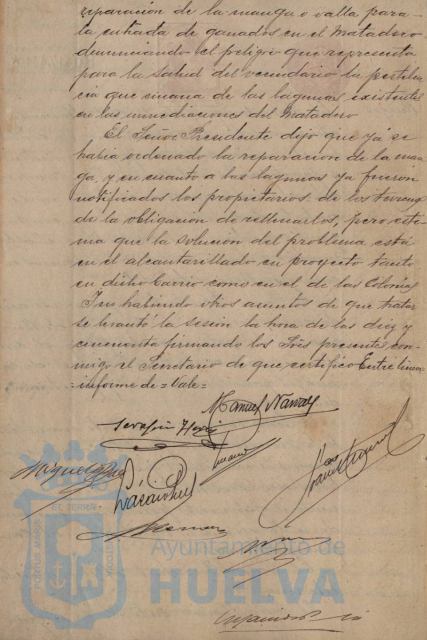 reparación de la manga o valla para
la entrada de ganados en el Matadero
denunciando el peligro que representa
para la salud del vecindario la pestilen
cia que emana de las lagunas existentes
en las inmediaciones del Matadero
El Señor Presidente dijo que ya se
había ordenado la reparación de la man
ga, y en cuanto a las lagunas ya fueron
notificados los propietarios de los terrenos
de la obligación de rellenarlos, pero esti
ma que la solución del problema está
en el alcantarillado en proyecto tanto
en dicho barrio como en el de las Colonias
Y no habiendo otros asuntos de que tratar
se levantó la sesión la hora de las diez y
cincuenta firmando los Sres presentes con
migo el Secretario de que certifico Entre lineas
=informe de= Vale=
Manuel
Serafín
Miguel
EL TERRA
Ayuntamiento de
HUELVA